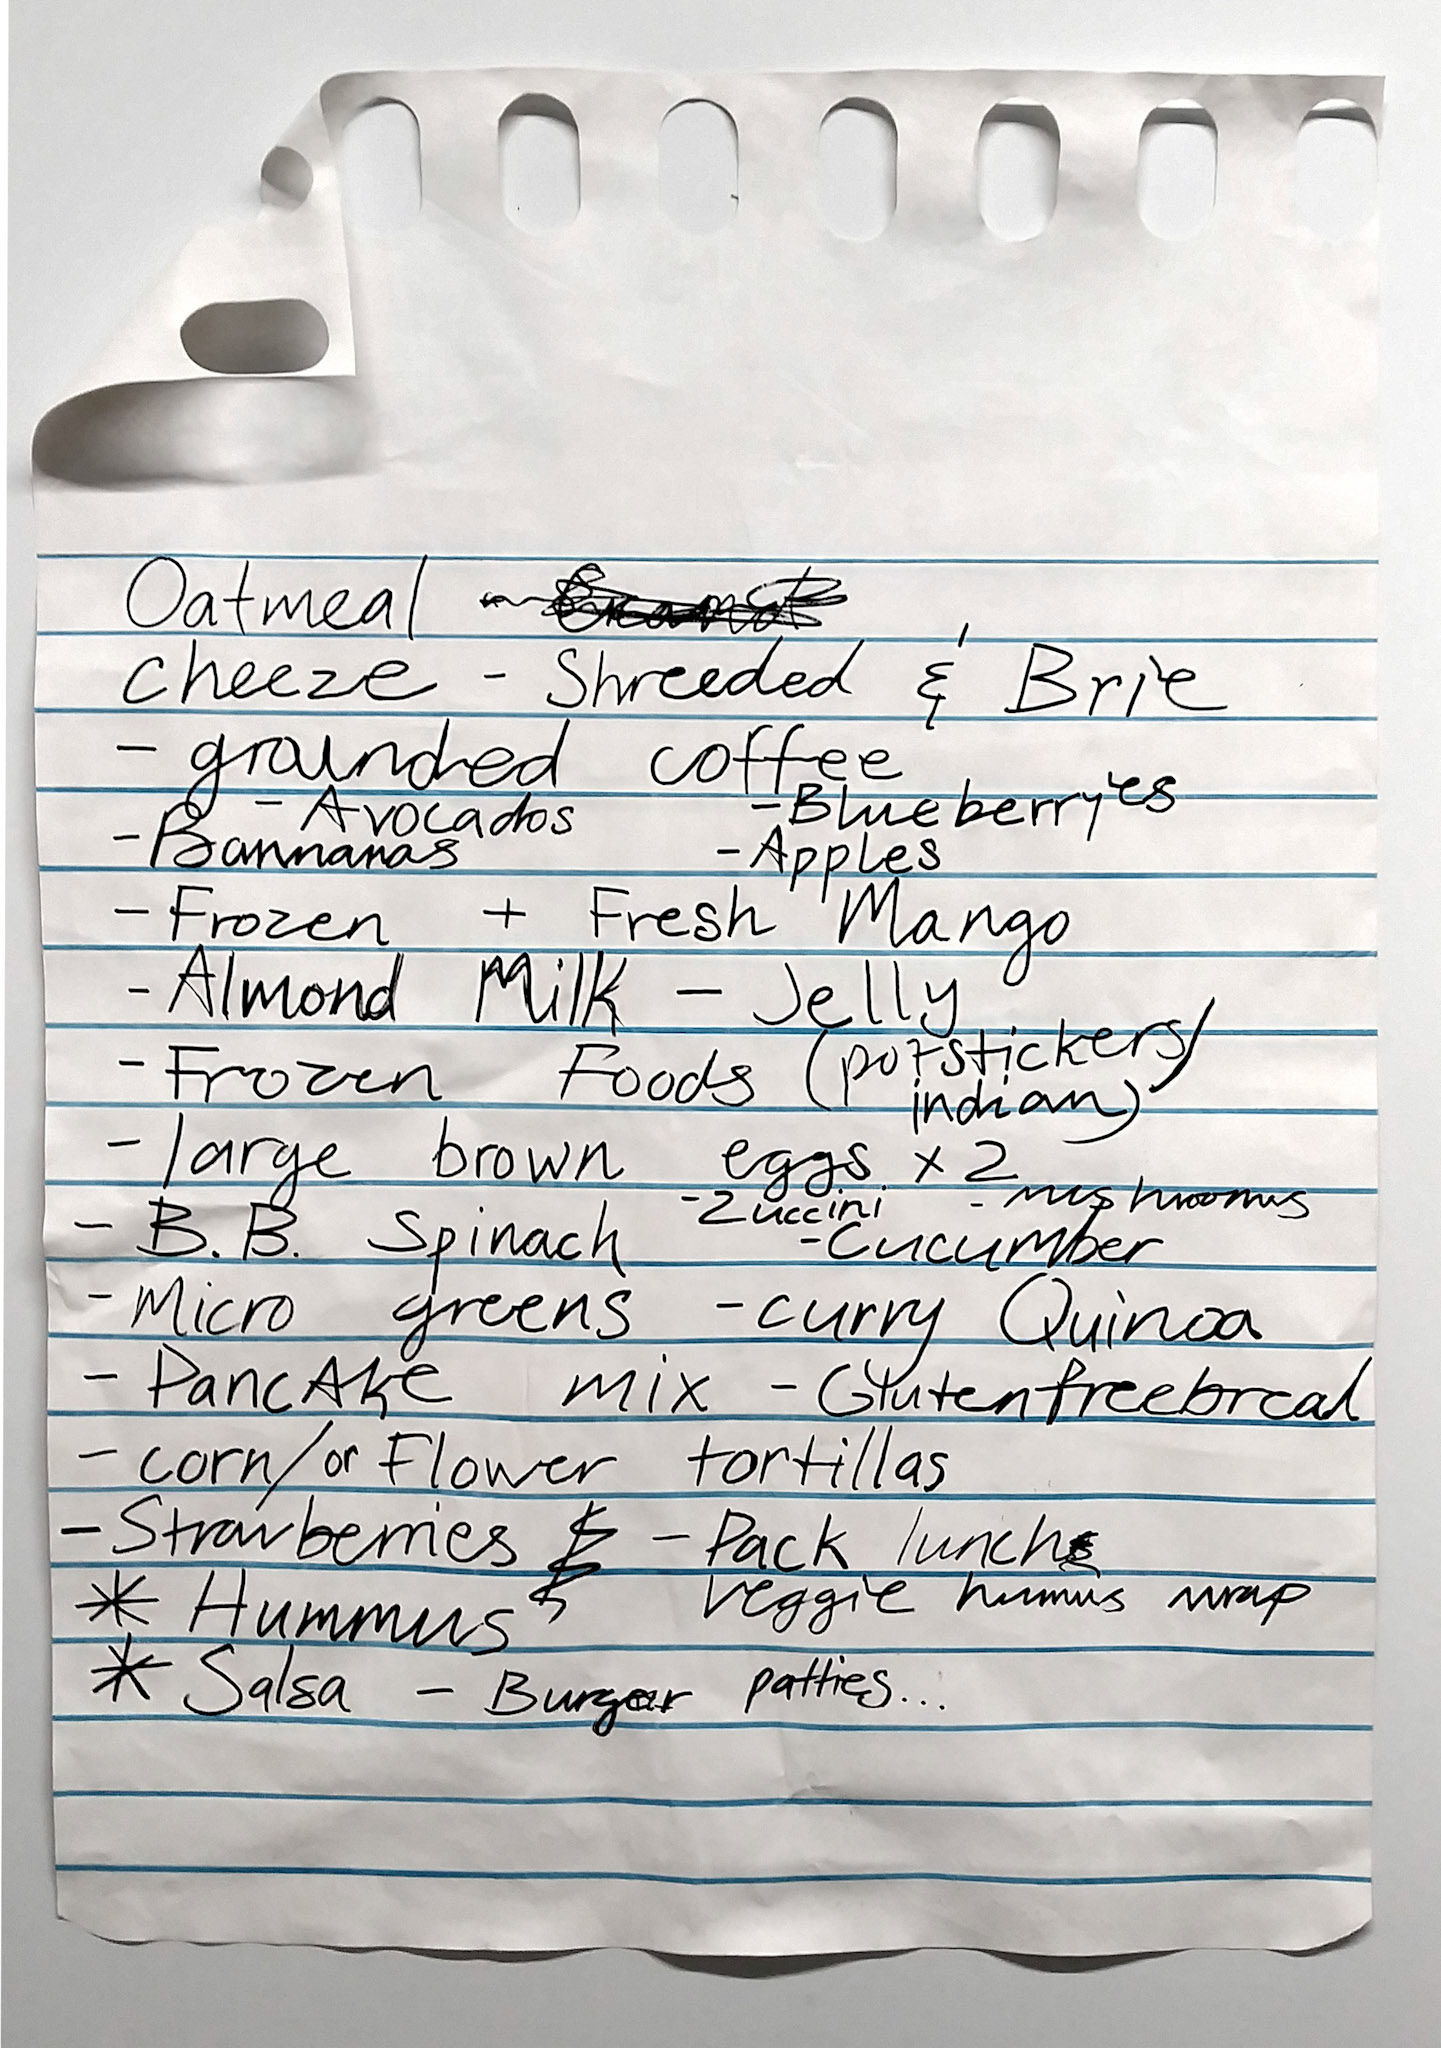 Oatmeal -
cheeze - Shreeded & Brie
- grounded coffee
- Avocados - Blueberryies
- Bannanas - Apples
- Frozen + Fresh Mango
- Almond Milk - Jelly
- Frozen Foods (potstickers/
indian)
- large brown eggs x 2
- Zuccini - mushroomus
- B.B. Spinach - Cucumber
- Micro greens - curry Quinoa
- PancAke mix - Glutenfreebread
- corn/or Flower tortillas
- Strawberries $ - Pack lunchs
* Hummus $ veggie humus wrap
* Salsa - Burger patties...